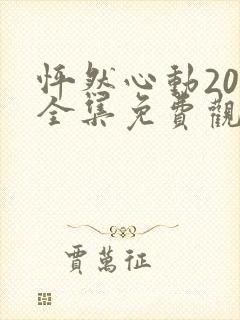 怦然心動20
全集免費觀
賈萬征